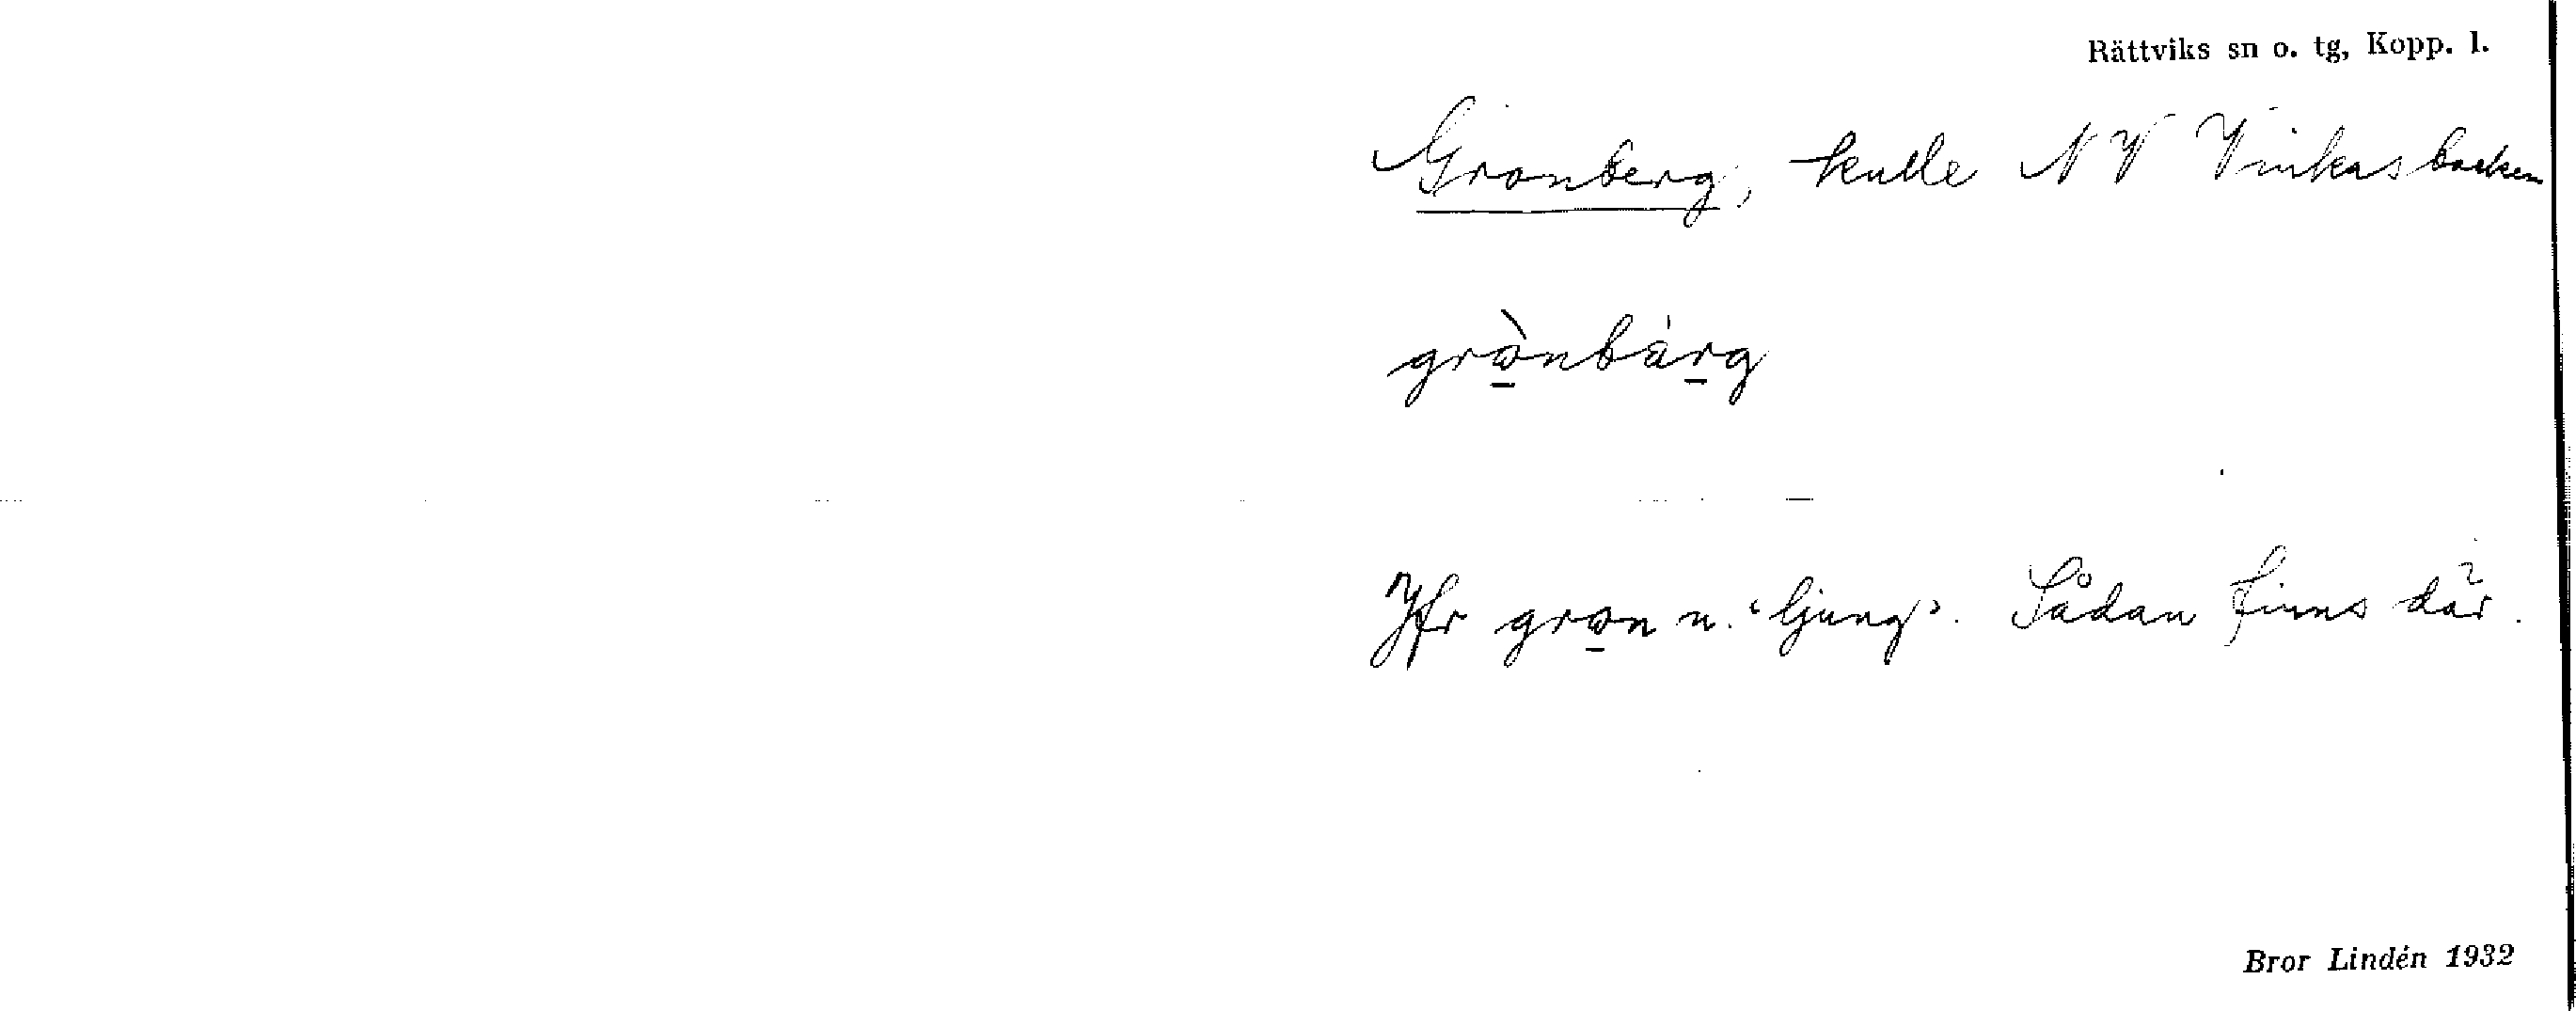 Rättviks sn o. tg, Kopp. l.
Gronberg, kulle NV Vinkasbacken
grònbàrg
Jfr gron n. "ljung". Sådan finns där.
Bror Lindén 1932